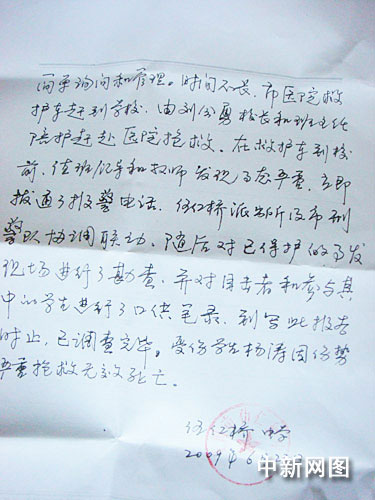 简单询问和管理。时间不长，市医院救
护车赶到学校，由刘公勇校长和班主任
陪护赶赴医院抢救。在救护车到校
前，值班领导和教师发现事态严重，立即
拨通了报警电话，伍仁桥派出所及市刑
警队协调联动，随后对已保护的事发
现场进行了勘查，并对目击者和参与其
中的学生进行了口供笔录，到写此报告
时止，已调查完毕。受伤学生杨涛因伤势
严重抢救无效死亡。
伍仁桥中学
2009年6
中新网图